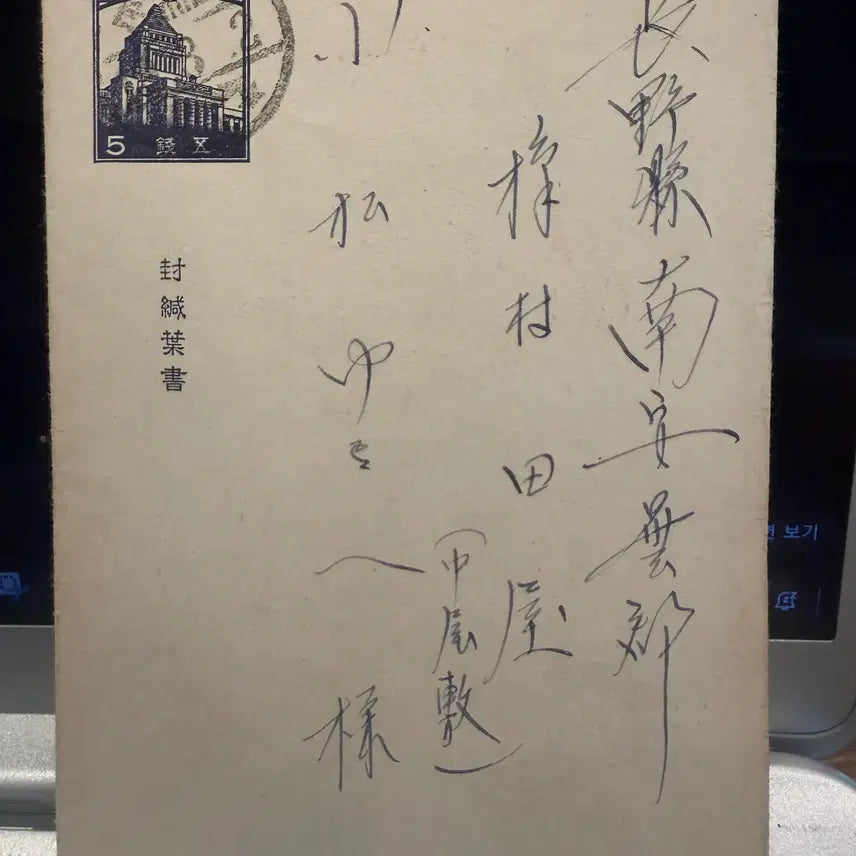 長野縣南安曇郡
梓村田屋
(中屋敷)
小松ゆ へ様
5 五錢
封緘葉書
보기